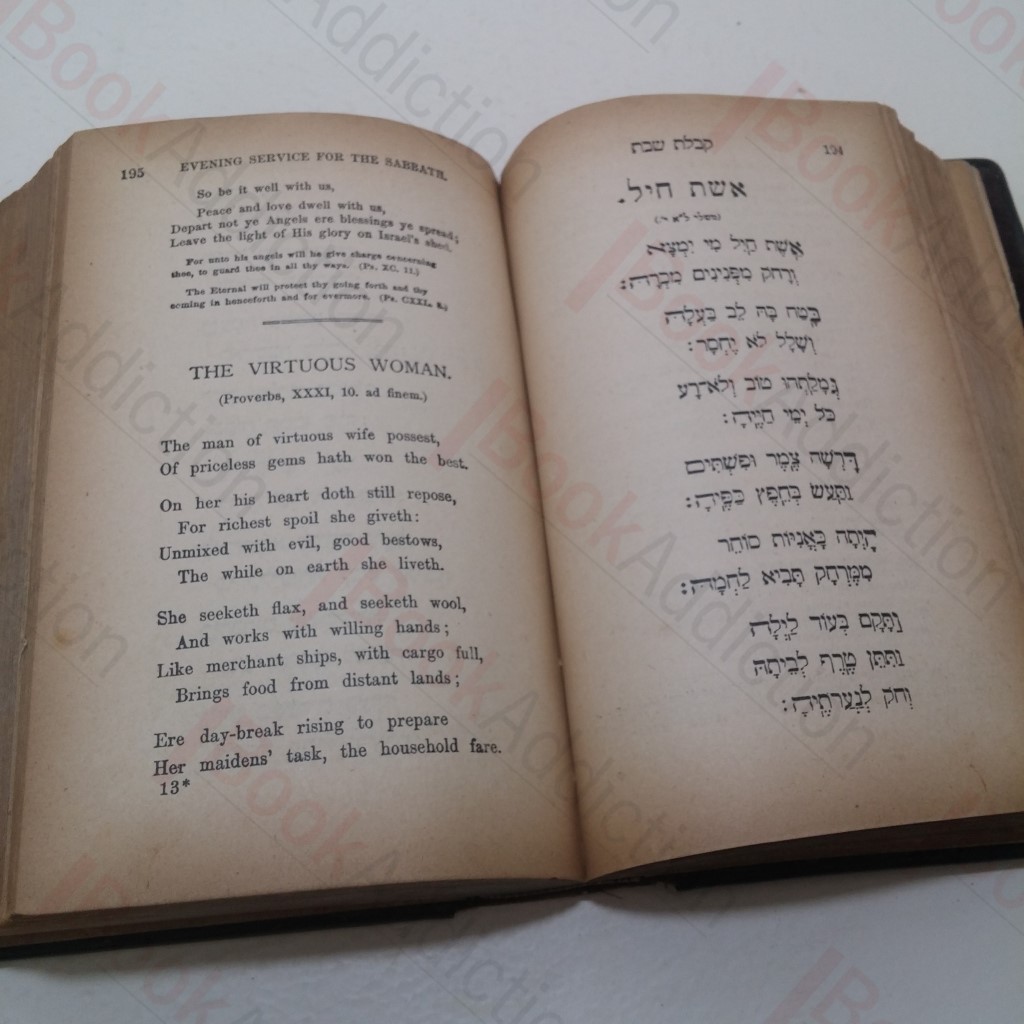 קבלת שבת 194
אשת חיל.
(משלי ל״א י׳)
אֵשֶׁת חַיִל מִי יִמְצָא
וְרָחֹק מִפְּנִינִים מִכְרָהּ:
בָּטַח בָּהּ לֵב בַּעְלָהּ
וְשָׁלָל לֹא יֶחְסָר:
גְּמָלַתְהוּ טוֹב וְלֹא־רָע
כֹּל יְמֵי חַיֶּיהָ:
דָּרְשָׁה צֶמֶר וּפִשְׁתִּים
וַתַּעַשׂ בְּחֵפֶץ כַּפֶּיהָ:
הָיְתָה כָּאֳנִיּוֹת סוֹחֵר
מִמֶּרְחָק תָּבִיא לַחְמָהּ:
וַתָּקָם בְּעוֹד לַיְלָה
וַתִּתֵּן טֶרֶף לְבֵיתָהּ
וְחֹק לְנַעֲרֹתֶיהָ:
195 EVENING SERVICE FOR THE SABBATH.
So be it well with us,
Peace and love dwell with us,
Depart not ye Angels ere blessings ye spread;
Leave the light of His glory on Israel's shed.
For unto his angels will he give charge concerning
thee, to guard thee in all thy ways. (Ps. XC. 11.)
The Eternal will protect thy going forth and thy
coming in henceforth and for evermore. (Ps. CXXI. 8.)
THE VIRTUOUS WOMAN.
(Proverbs, XXXI, 10. ad finem.)
The man of virtuous wife possest,
Of priceless gems hath won the best.
On her his heart doth still repose,
For richest spoil she giveth:
Unmixed with evil, good bestows,
The while on earth she liveth.
She seeketh flax, and seeketh wool,
And works with willing hands;
Like merchant ships, with cargo full,
Brings food from distant lands;
Ere day-break rising to prepare
Her maidens' task, the household fare.
13*
BookAddiction